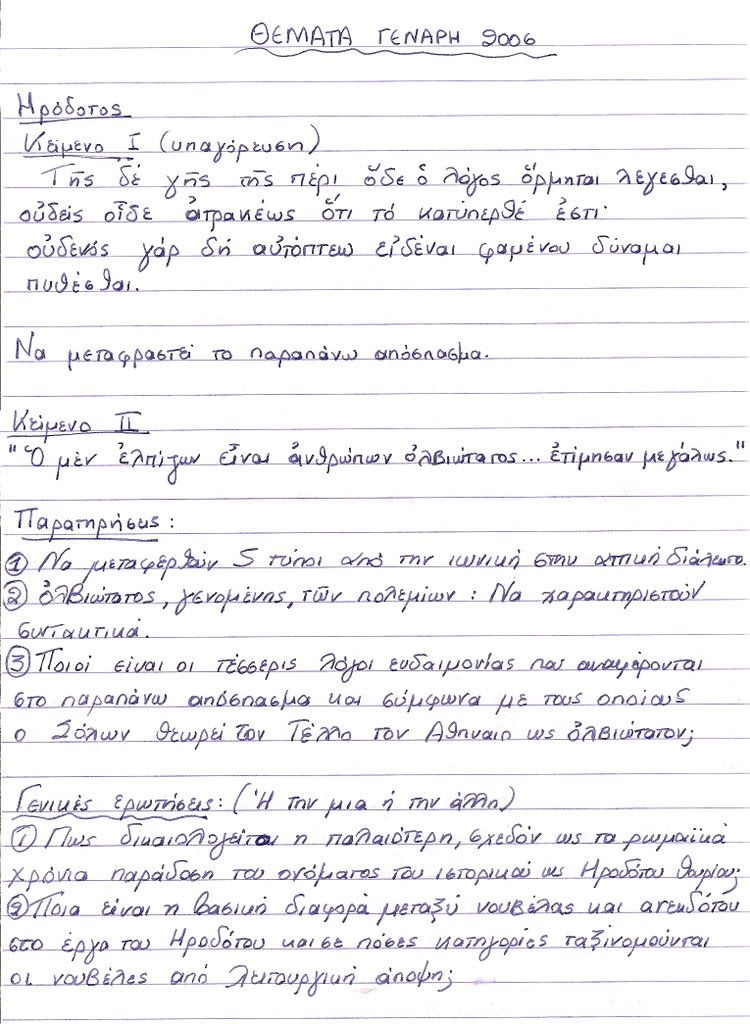 ΘΕΜΑΤΑ ΓΕΝΑΡΗ 2006
Ηρόδοτος
Κείμενο Ι (υπαγόρευση)
Τῆς δέ γῆς τῆς πέρι ὅδε ὁ λόγος ὅρμηται λέγεσθαι,
οὐδείς οἶδε ἀτρακέως ὅτι τό κατύπερθέ ἐστι·
οὐδενός γάρ δή αὐτόπτεω εἰδέναι φαμένου δύναμαι
πυθέσθαι.
Να μεταφραστεί το παραπάνω απόσπασμα.
Κείμενο ΙΙ
"Ὁ μέν ἐλπίζων εἶναι ἀνθρώπων ὀλβιώτατος... ἐτίμησαν μεγάλως."
Παρατηρήσεις:
① Να μεταφερθούν 5 τύποι από την ιωνική στην αττική διάλεκτο.
② ὀλβιώτατος, γενομένης, τῶν πολεμίων : Να χαρακτηριστούν
συντακτικά.
③ Ποιοί είναι οι τέσσερις λόγοι ευδαιμονίας που αναφέρονται
στο παραπάνω απόσπασμα και σύμφωνα με τους οποίους
ο Σόλων θεωρεί τον Τέλλο τον Αθηναίο ως ὀλβιώτατον;
Γενικές ερωτήσεις: (Ἡ την μια ή την άλλη)
① Πως δικαιολογείται η παλαιότερη, σχεδόν ως τα ρωμαϊκά
χρόνια παράδοση του ονόματος του ιστορικού ως Ηροδότου Θουρίου;
② Ποια είναι η βασική διαφορά μεταξύ νουβέλας και ανεκδότου
στο έργο του Ηροδότου και σε πόσες κατηγορίες ταξινομούνται
οι νουβέλες από λειτουργική άποψη;